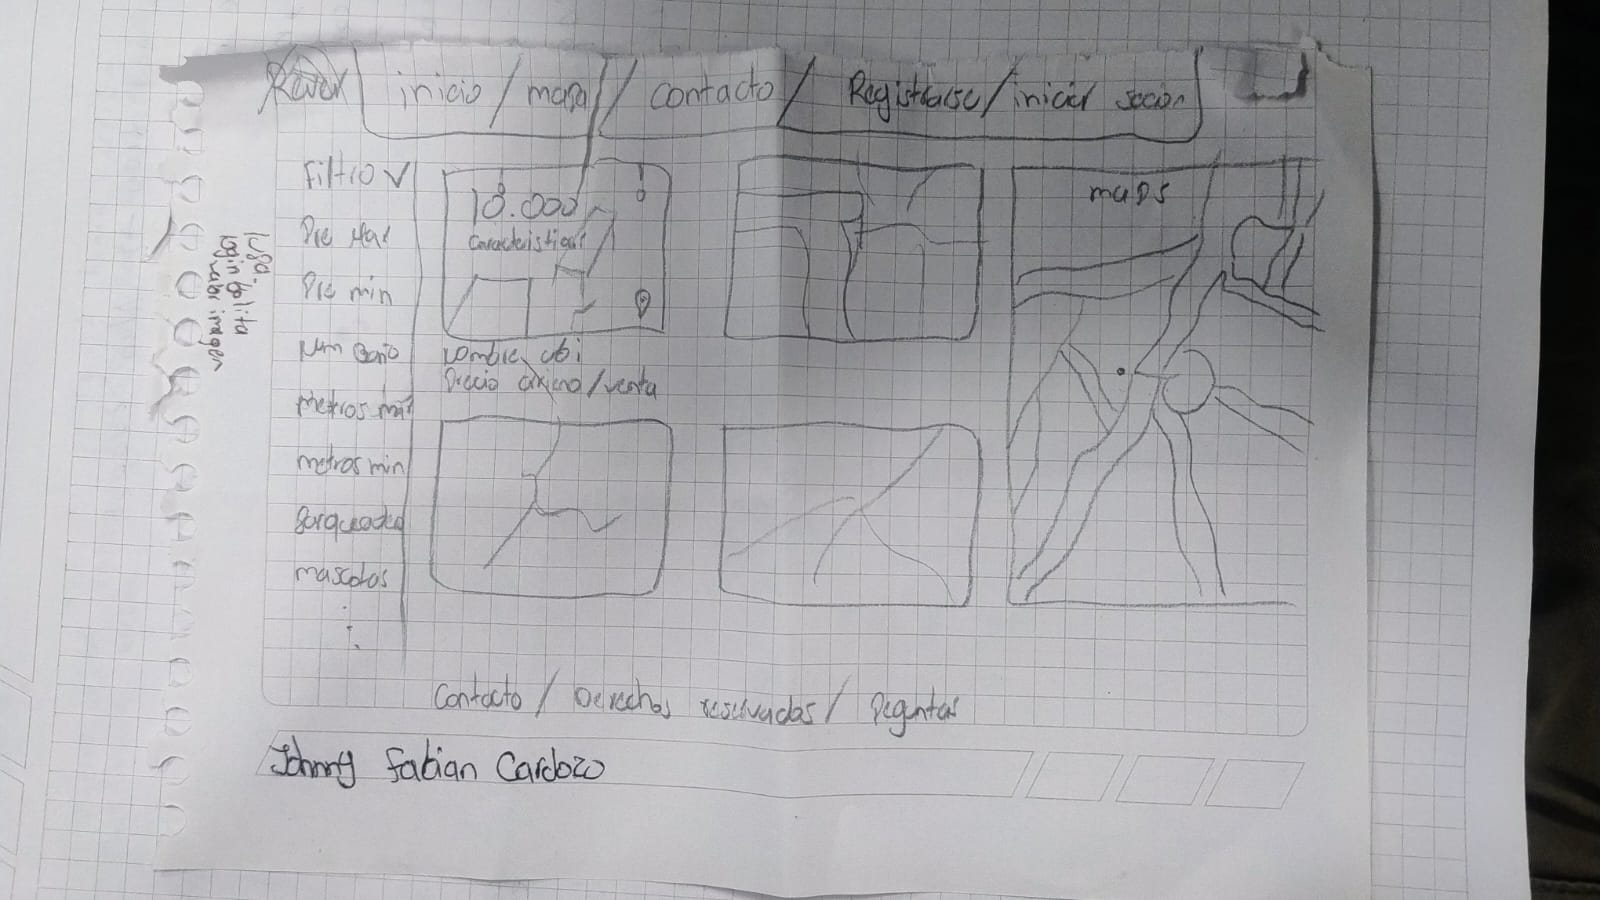 inicio / mapa / contacto / Registrarse / iniciar secion
Filtro V
Pre Max
Pre min
Num Baño
metros max
metros min
Parqueadero
mascotas
10.000
caracteristicas
nombre, ubi
Precio /venta
maps
Contacto / Derechos reservados / Peguntas
Johnny Fabian Cardozo